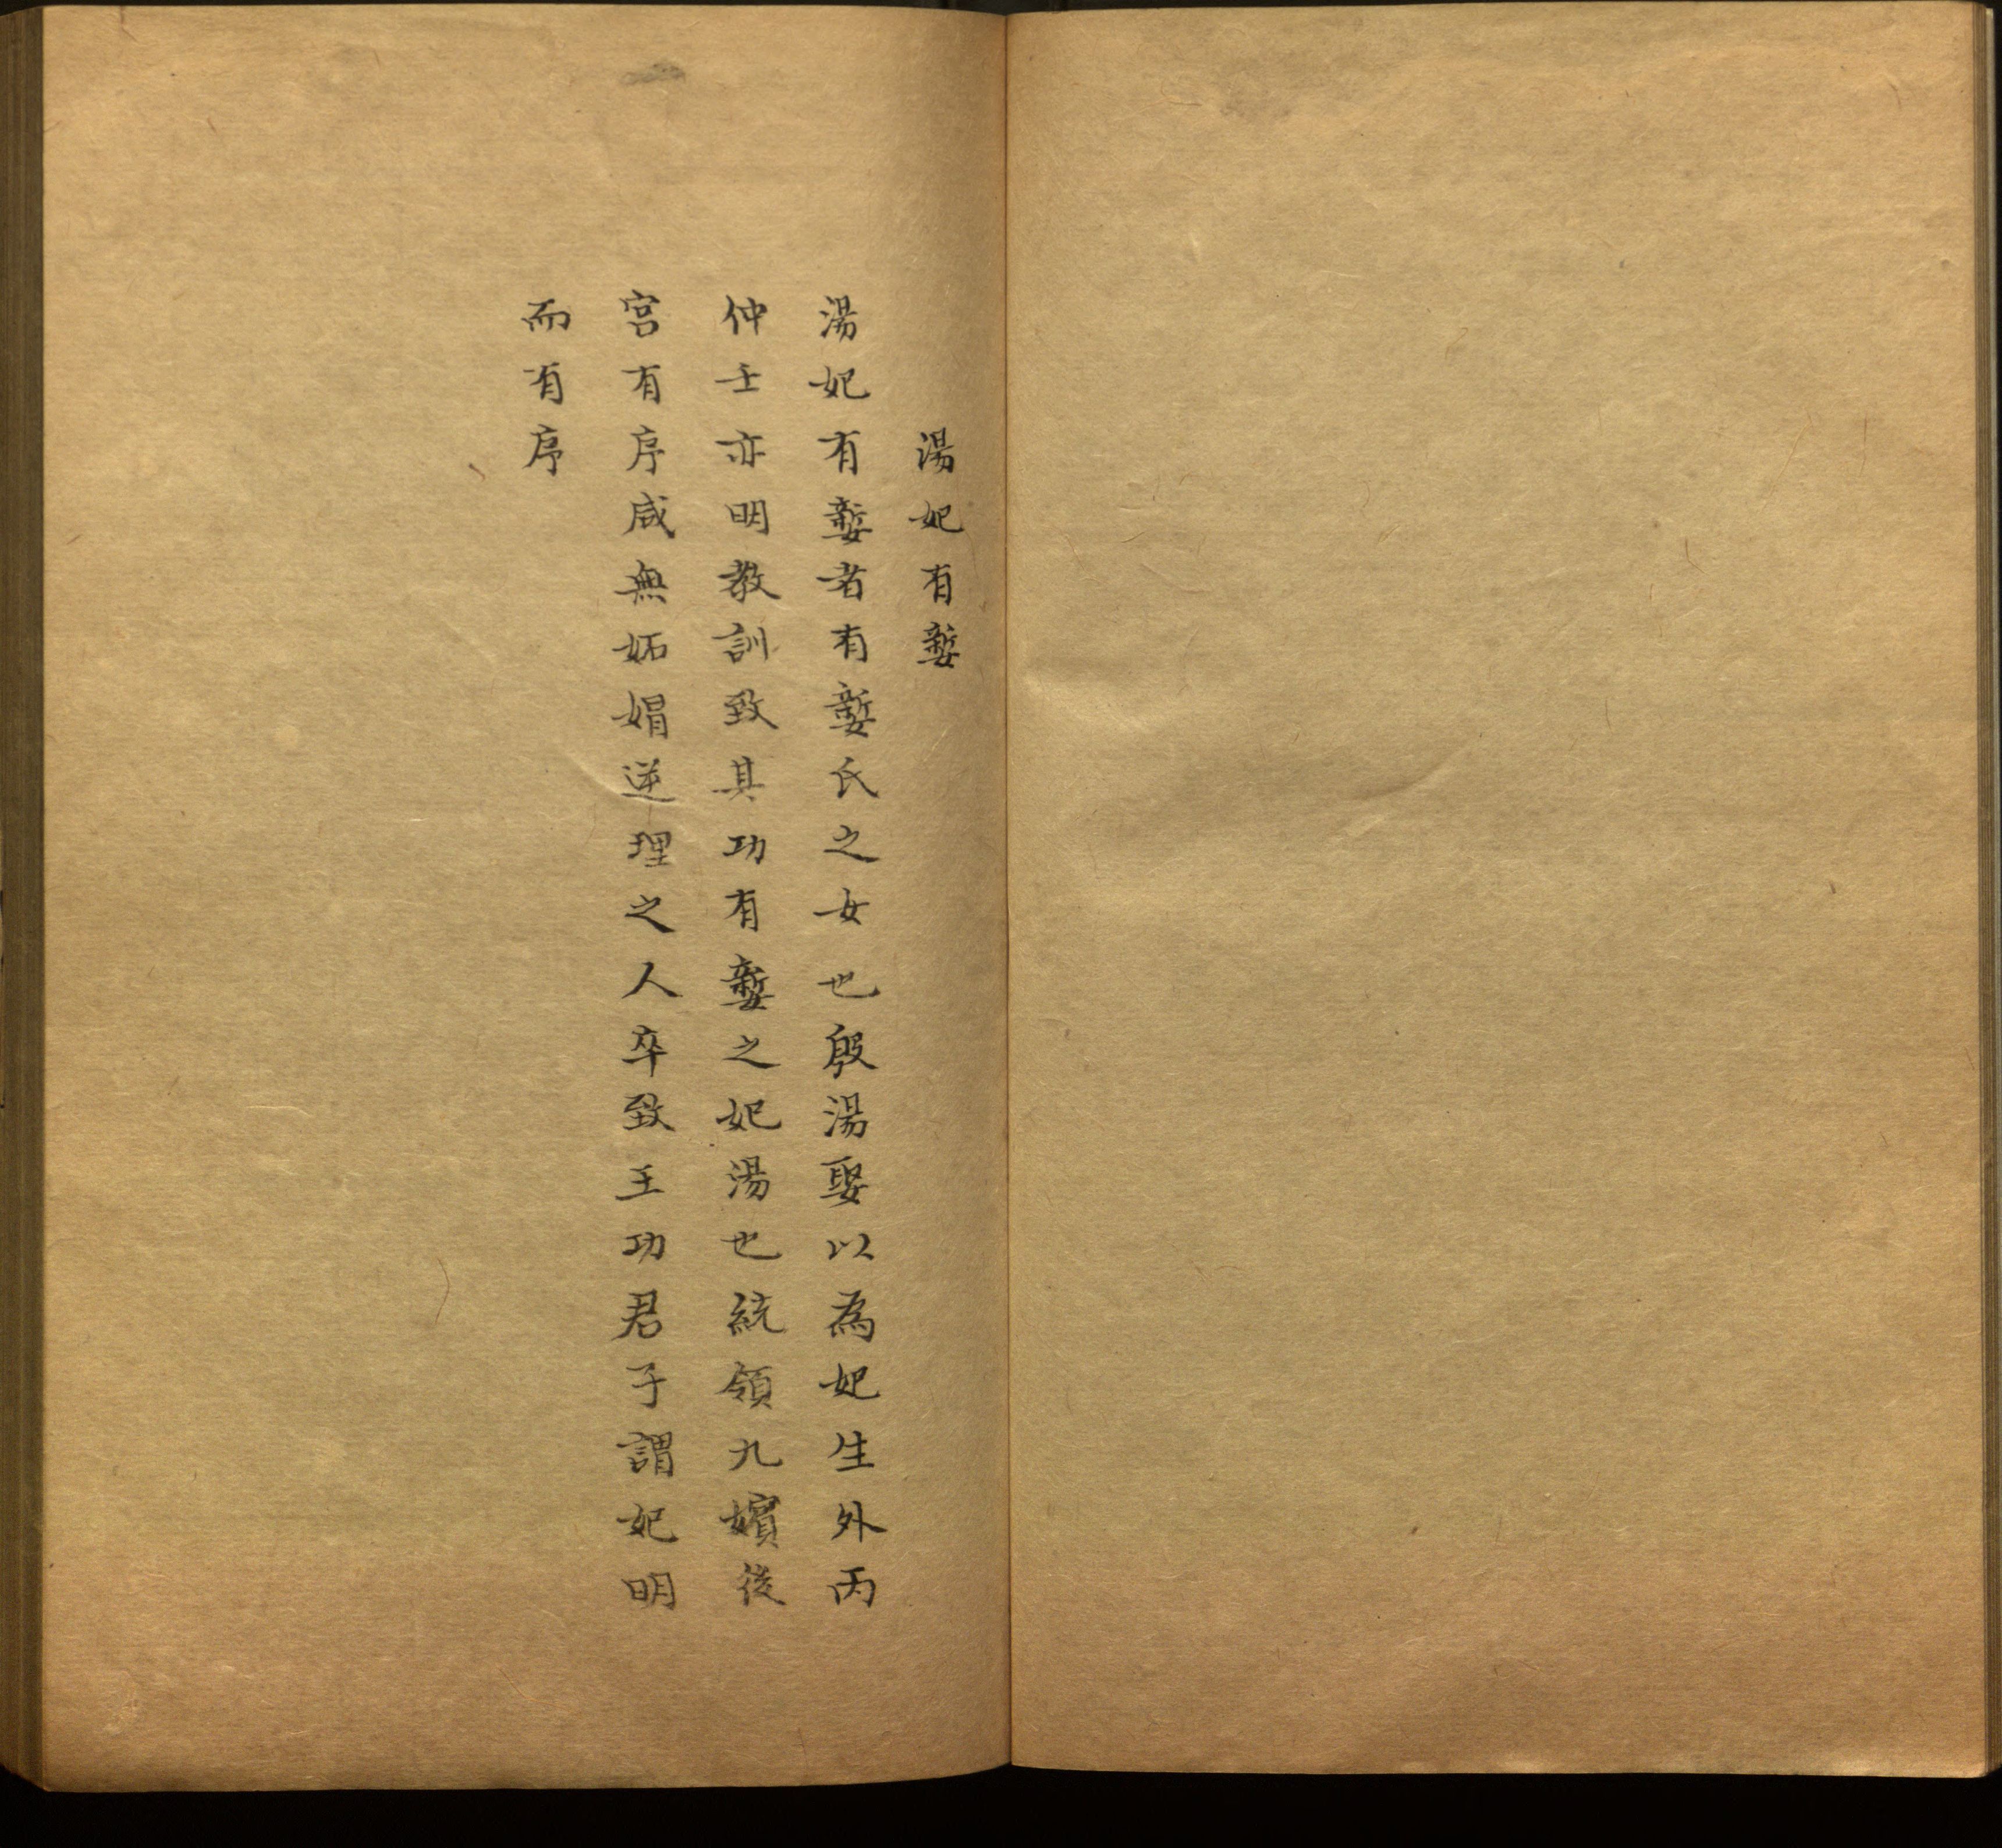 湯妃有㜪
湯妃有㜪者有㜪氏之女也殷湯娶以為妃生外丙
仲壬亦明教訓致其功有㜪之妃湯也統領九嬪後
宮有序咸無妬媢逆理之人卒致王功君子謂妃明
而有序